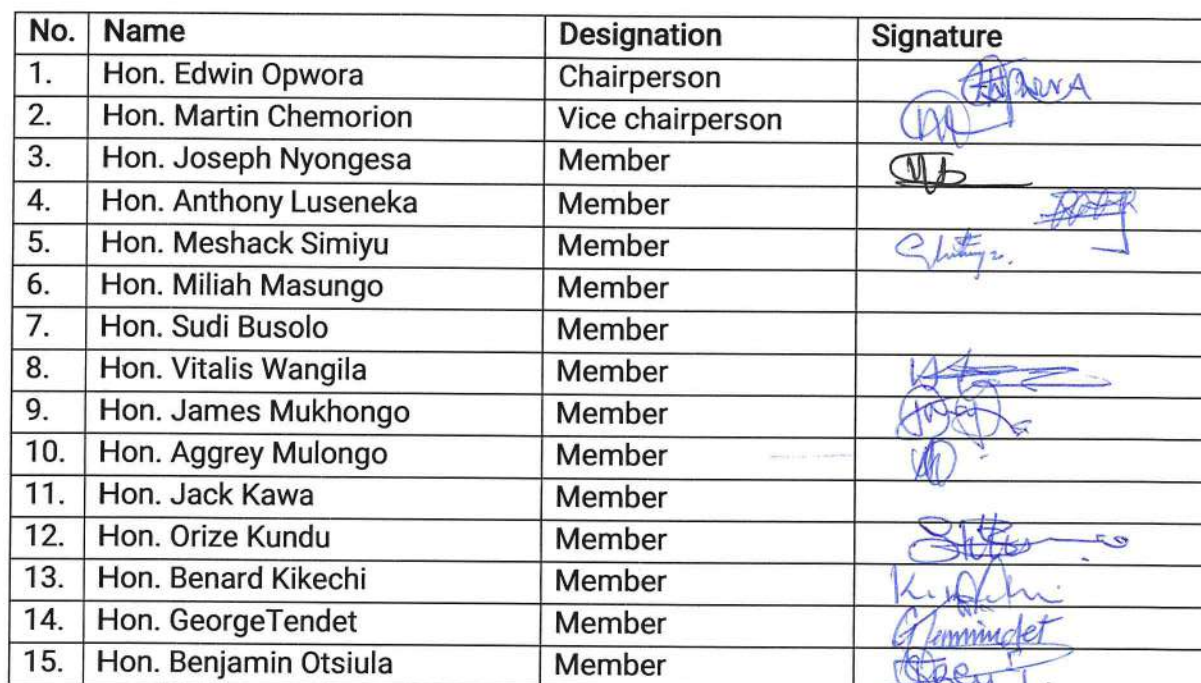 No. Name Designation Signature
1. Hon. Edwin Opwora Chairperson
2. Hon. Martin Chemorion Vice chairperson
3. Hon. Joseph Nyongesa Member
4. Hon. Anthony Luseneka Member
5. Hon. Meshack Simiyu Member
6. Hon. Miliah Masungo Member
7. Hon. Sudi Busolo Member
8. Hon. Vitalis Wangila Member
9. Hon. James Mukhongo Member
10. Hon. Aggrey Mulongo Member
11. Hon. Jack Kawa Member
12. Hon. Orize Kundu Member
13. Hon. Benard Kikechi Member
14. Hon. GeorgeTendet Member
15. Hon. Benjamin Otsiula Member